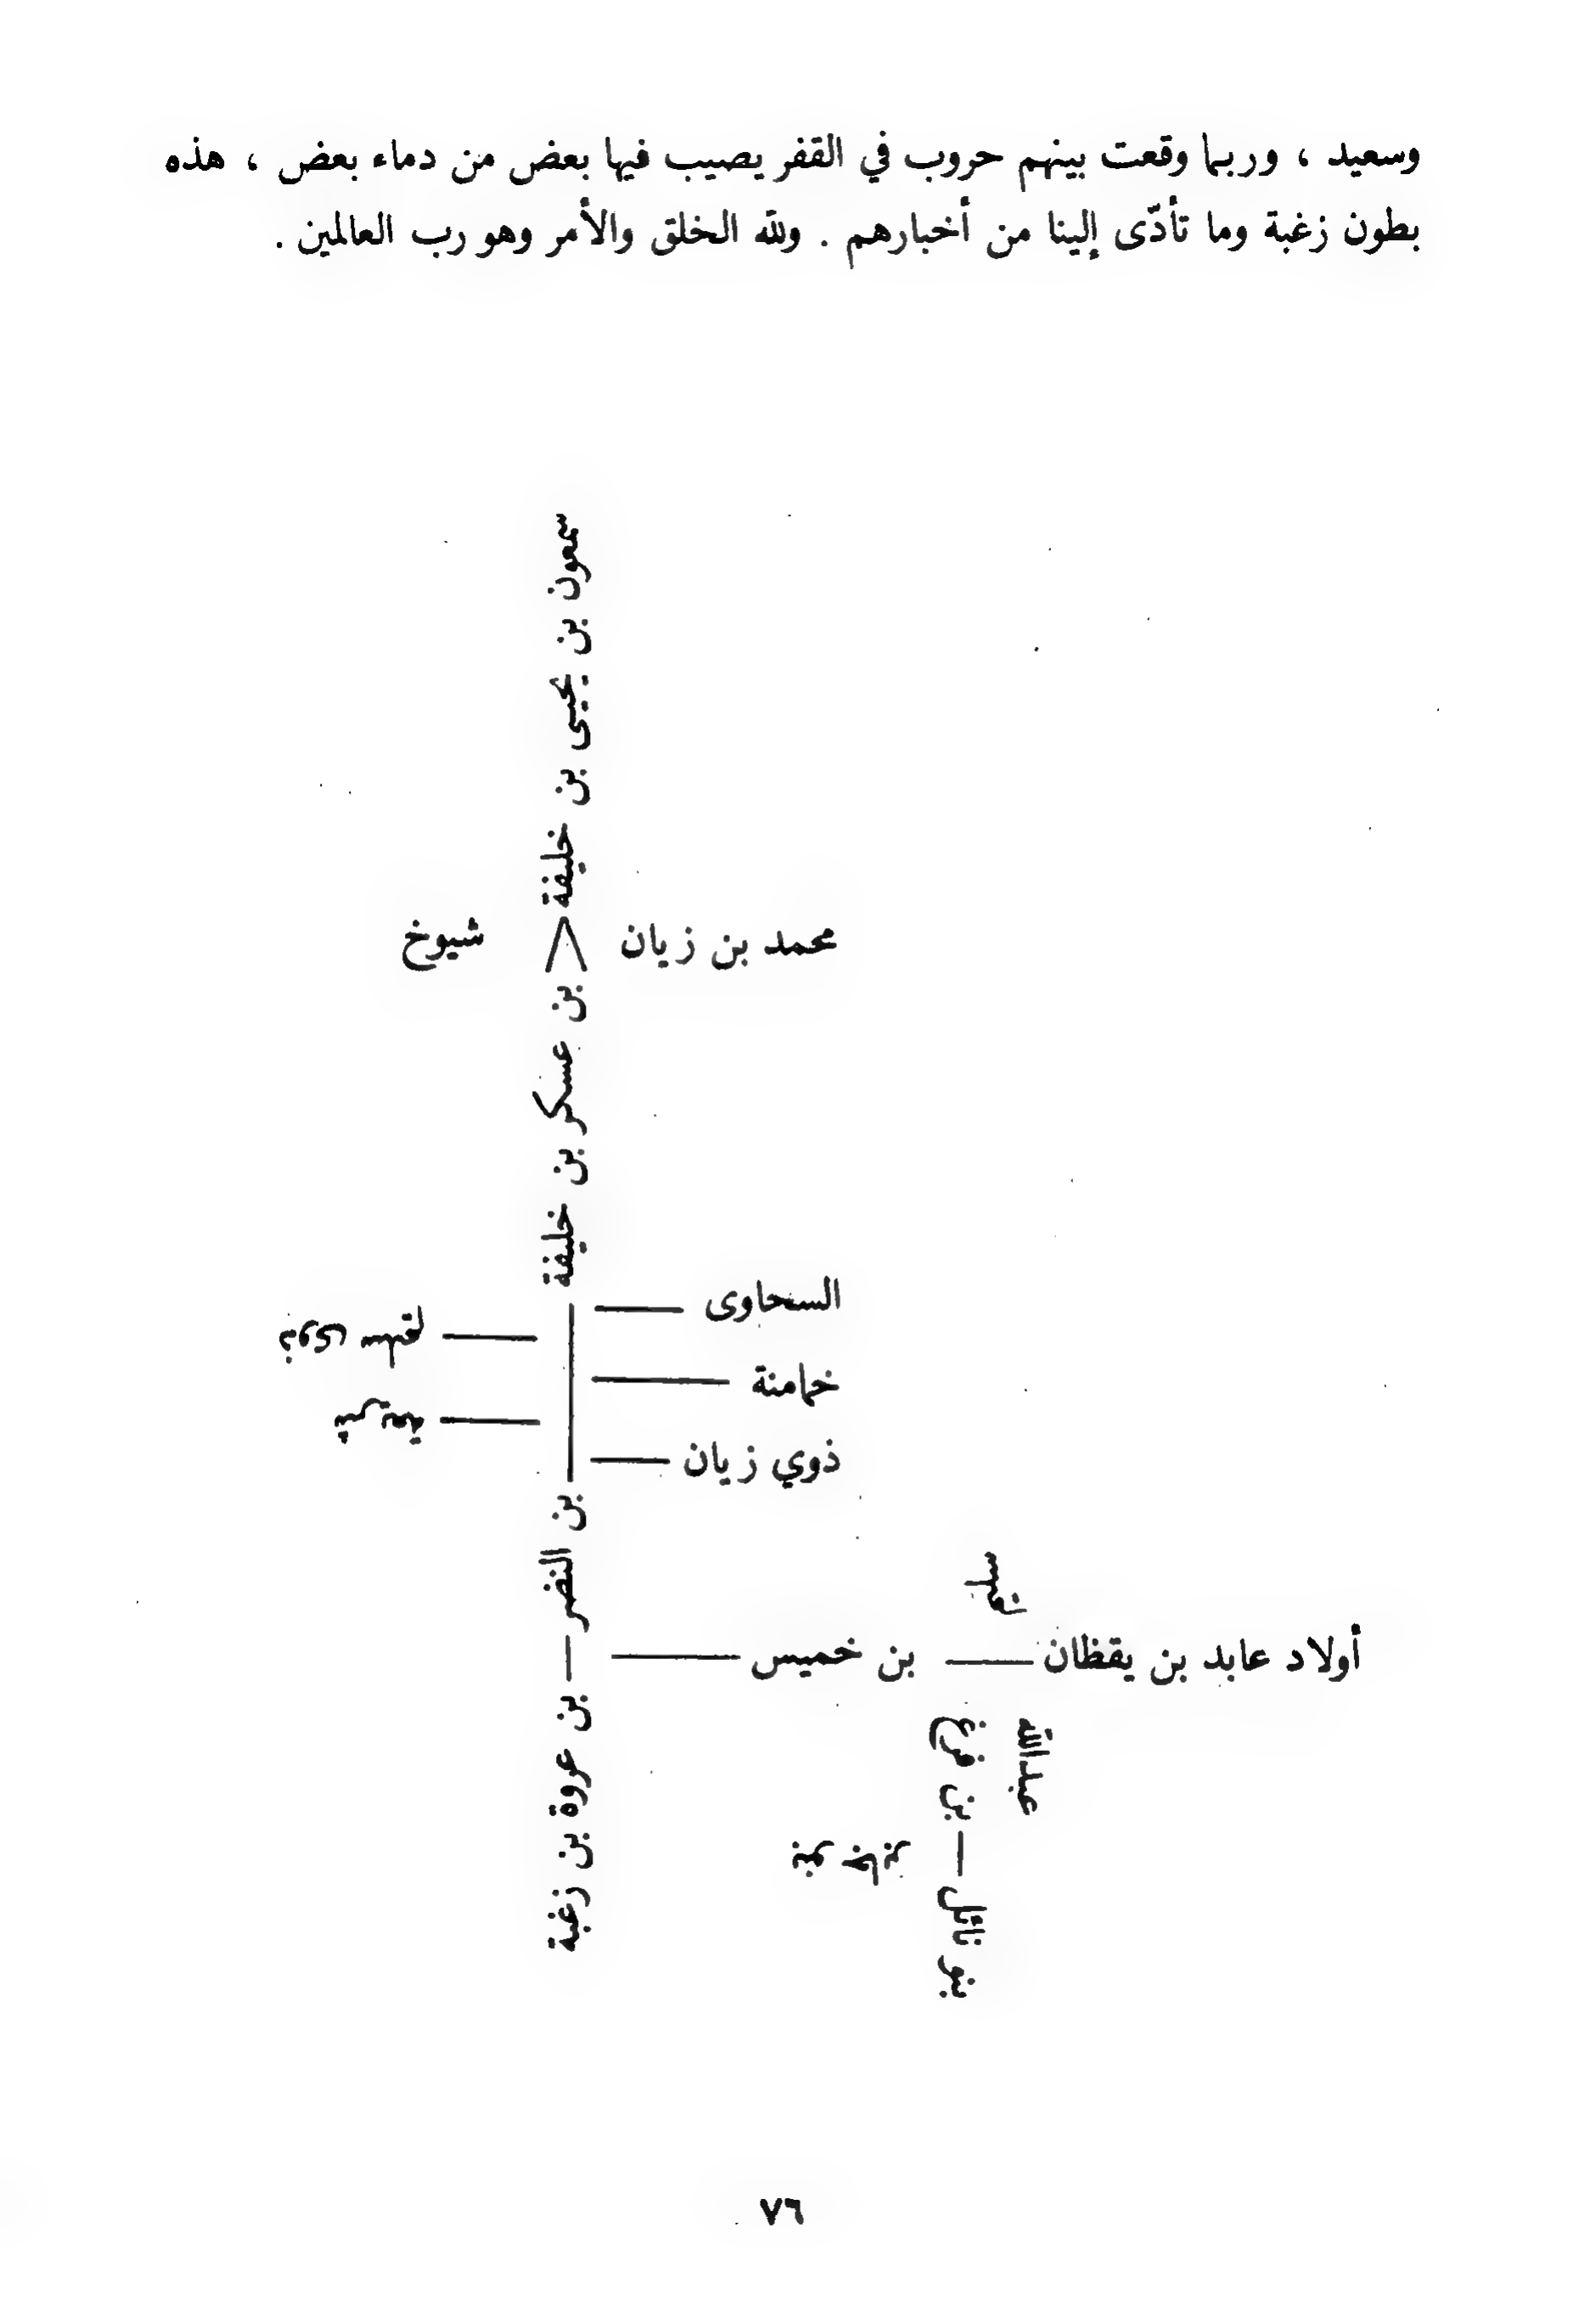 وسعيد ، وربما وقعت بينهم حروب في القفر يصيب فيها بعض من دماء بعض ، هذه
بطون زغبة وما تأدّى إلينا من أخبارهم . ولله الخلق والأمر وهو رب العالمين .
سمعون بن يحيى بن خليفة
محمد بن زيان
شيوخ
بن عسكر بن خليفة
السحاوى
خمامنة
ذوي زيان
بن النضر
أولاد عابد بن يقظان
بن خميس
عبدالله
بن فرغ
بنو نائل
بن عروة بن زغبة
٧٦